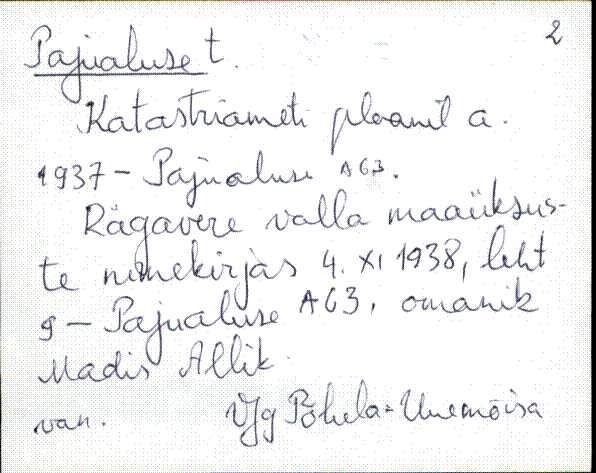 2
Pajualuse t.
Katastriameti plaanil a.
1937 - Pajualuse A63.
Rägavere valla maaüksus-
te nimekirjas 4. XI 1938, leht
9 - Pajualuse A63, omanik
Madis Allik.
van. VJg Põhela-Uuemõisa